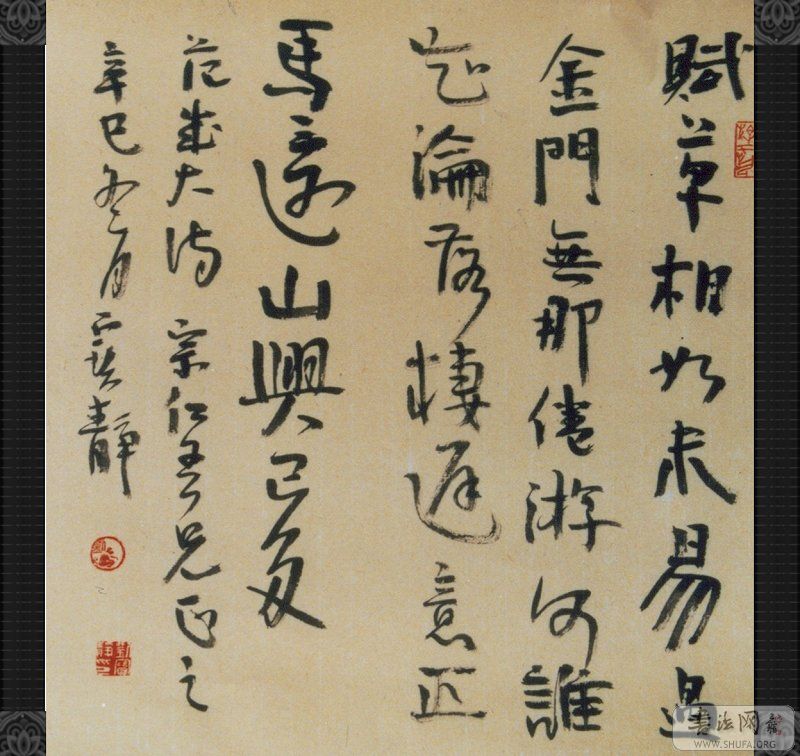 賦草相如未易過
金門無那倦游何誰
淪落棲遲意正
馬還山興已多
范成大詩 宗仁吾兄正之
辛巳冬月靜
書法网
WWW.SHUFA.ORG